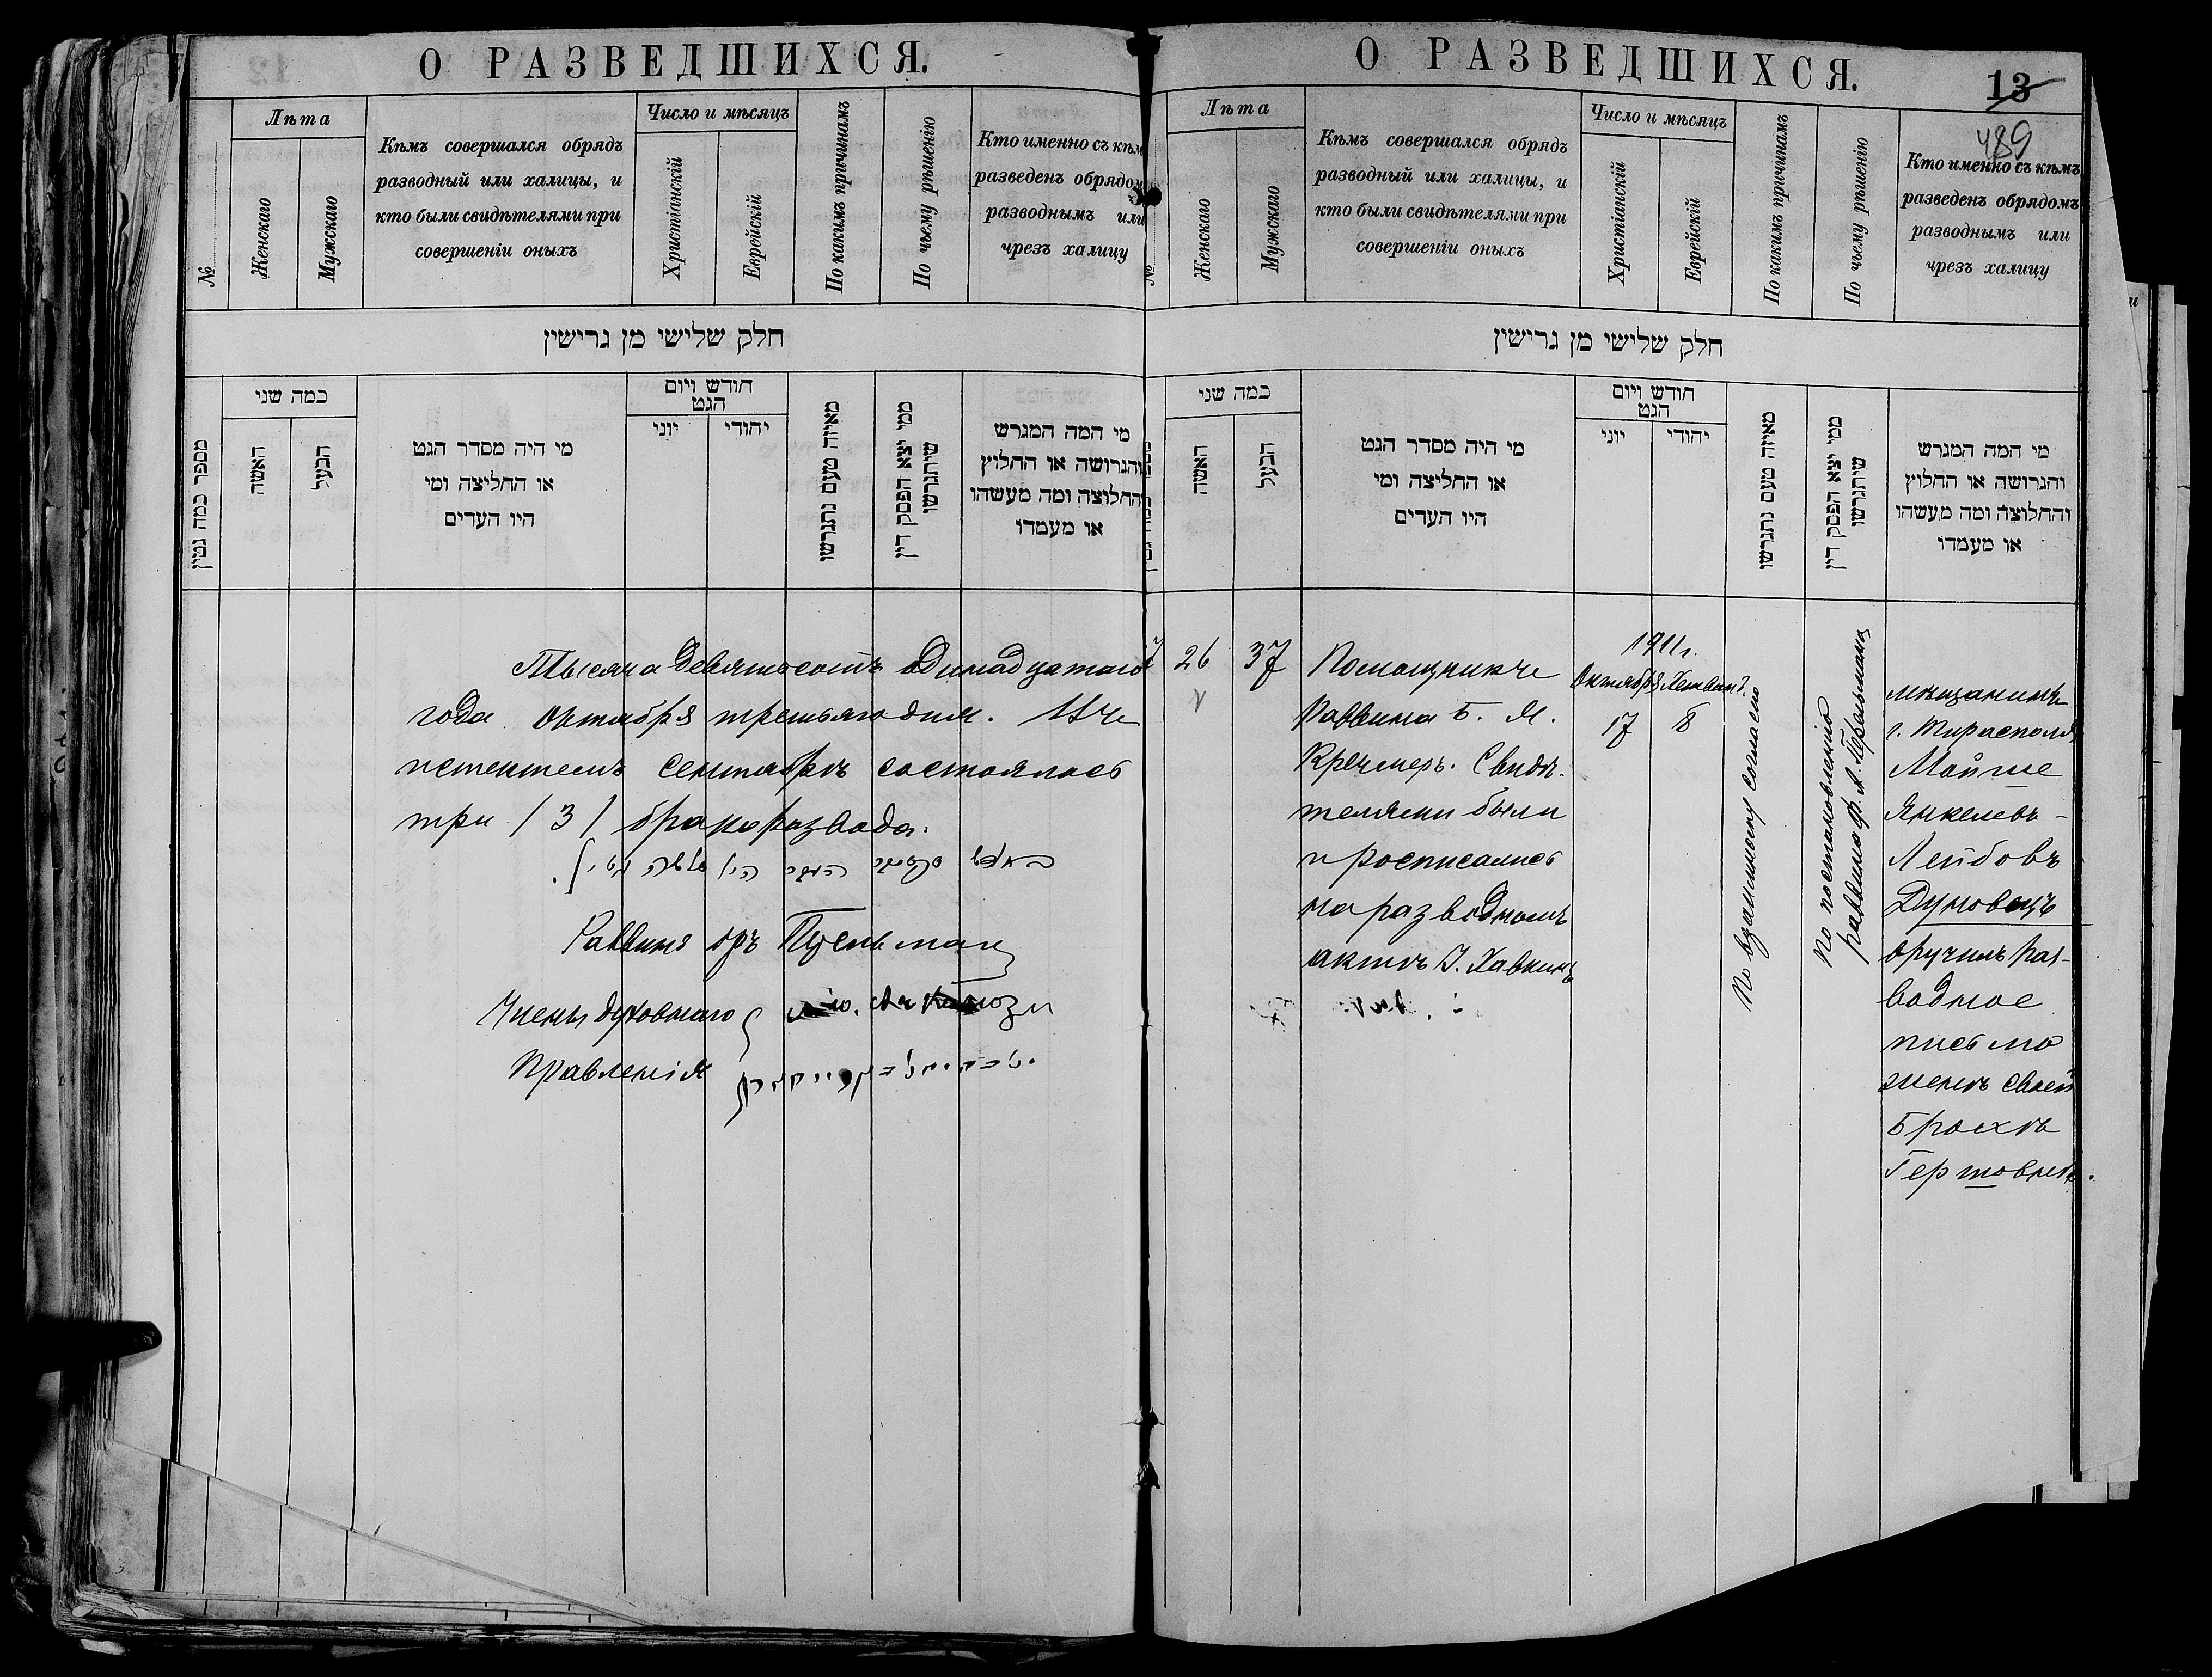 О РАЗВЕДШИХСЯ.
№
Лѣта
Женскаго
Мужскаго
Кѣмъ совершался обрядъ
разводный или халицы, и
кто были свидѣтелями при
совершеніи оныхъ
Число и мѣсяцъ
Христіанскій
Еврейскій
По какимъ причинамъ
По чьему рѣшенію
Кто именно съ кѣмъ
разведенъ обрядом
разводнымъ или
чрезъ халицу
חלק שלישי מן גרישין
מספר כמה גטין
כמה שני
האשה
הבעל
מי היה מסדר הגט
או החליצה ומי
היו העדים
חודש ויום
הגט
יוני
יהודי
מאיזה טעם נתגרשו
ממי יצא הפסק דין
שיתגרשו
מי המה המגרש
והגרושה או החלוץ
והחלוצה ומה מעשהו
או מעמדו
Тысяча девятьсотъ Одинадцатаго
года октября третьяго дня. Въ
истекшемъ сентябрѣ состоялось
три /3/ бракоразвода.
Раввинъ
Члены духовнаго
Правленія
О РАЗВЕДШИХСЯ.
13
489
№
Лѣта
Женскаго
Мужскаго
Кѣмъ совершался обрядъ
разводный или халицы, и
кто были свидѣтелями при
совершеніи оныхъ
Число и мѣсяцъ
Христіанскій
Еврейскій
По какимъ причинамъ
По чьему рѣшенію
Кто именно съ кѣмъ
разведенъ обрядомъ
разводнымъ или
чрезъ халицу
חלק שלישי מן גרישין
כמה שני
האשה
הבעל
מי היה מסדר הגט
או החליצה ומי
היו העדים
חודש ויום
הגט
יוני
יהודי
מאיזה טעם נתגרשו
ממי יצא הפסק דין
שיתגרשו
מי המה המגרש
והגרושה או החלוץ
והחלוצה ומה מעשהו
או מעמדו
26
37
Помощникъ
Раввина Б. М.
Кречмеръ. Свидѣ-
телями были
и росписались
на разводномъ
актѣ І. Хавкинъ
1911 г.
Октября
17
8
По взаимному согласію
По постановленію
раввина Ф. А.
мѣщанинъ
г. Тирасполя
Мойше
Янкелевъ-
Лейбовъ
Дуковецъ
вручилъ раз-
водное
письмо
женѣ своей
Брохѣ
Гершовнѣ.